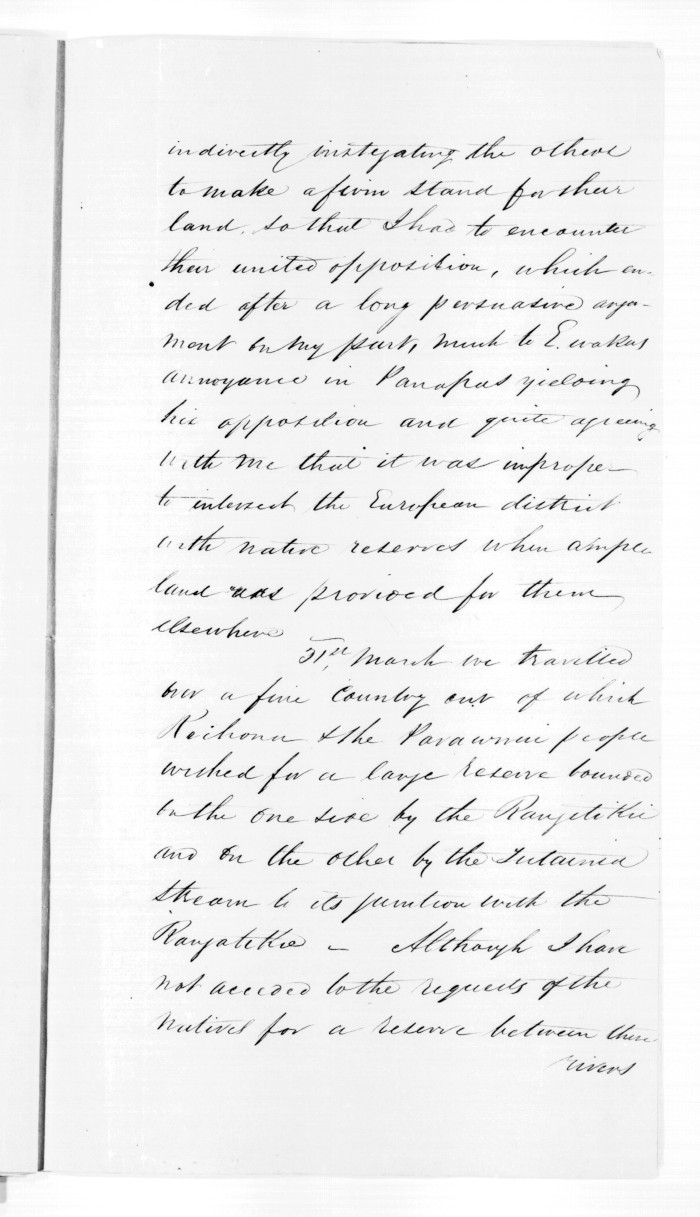 indirectly instigating the others
to make a firm stand for their
land. so that I had to encounter
their united opposition, which en-
ded after a long persuasive argu-
ment on my part, much to E. wakas
annoyance in Panapas yielding
his opposition and quite agreeing
with me that it was improper
to intersect the European district
with native reserves when ample
land was provided for them
elsewhere
31st, March we travelled
over a fine Country out of which
& the people
wished for a large reserve bounded
on the one side by the Rangitikie
and on the other by the
stream to its junction with the
Rangatikie — Although I have
not acceded to the requests of the
natives for a reserve between these
rivers